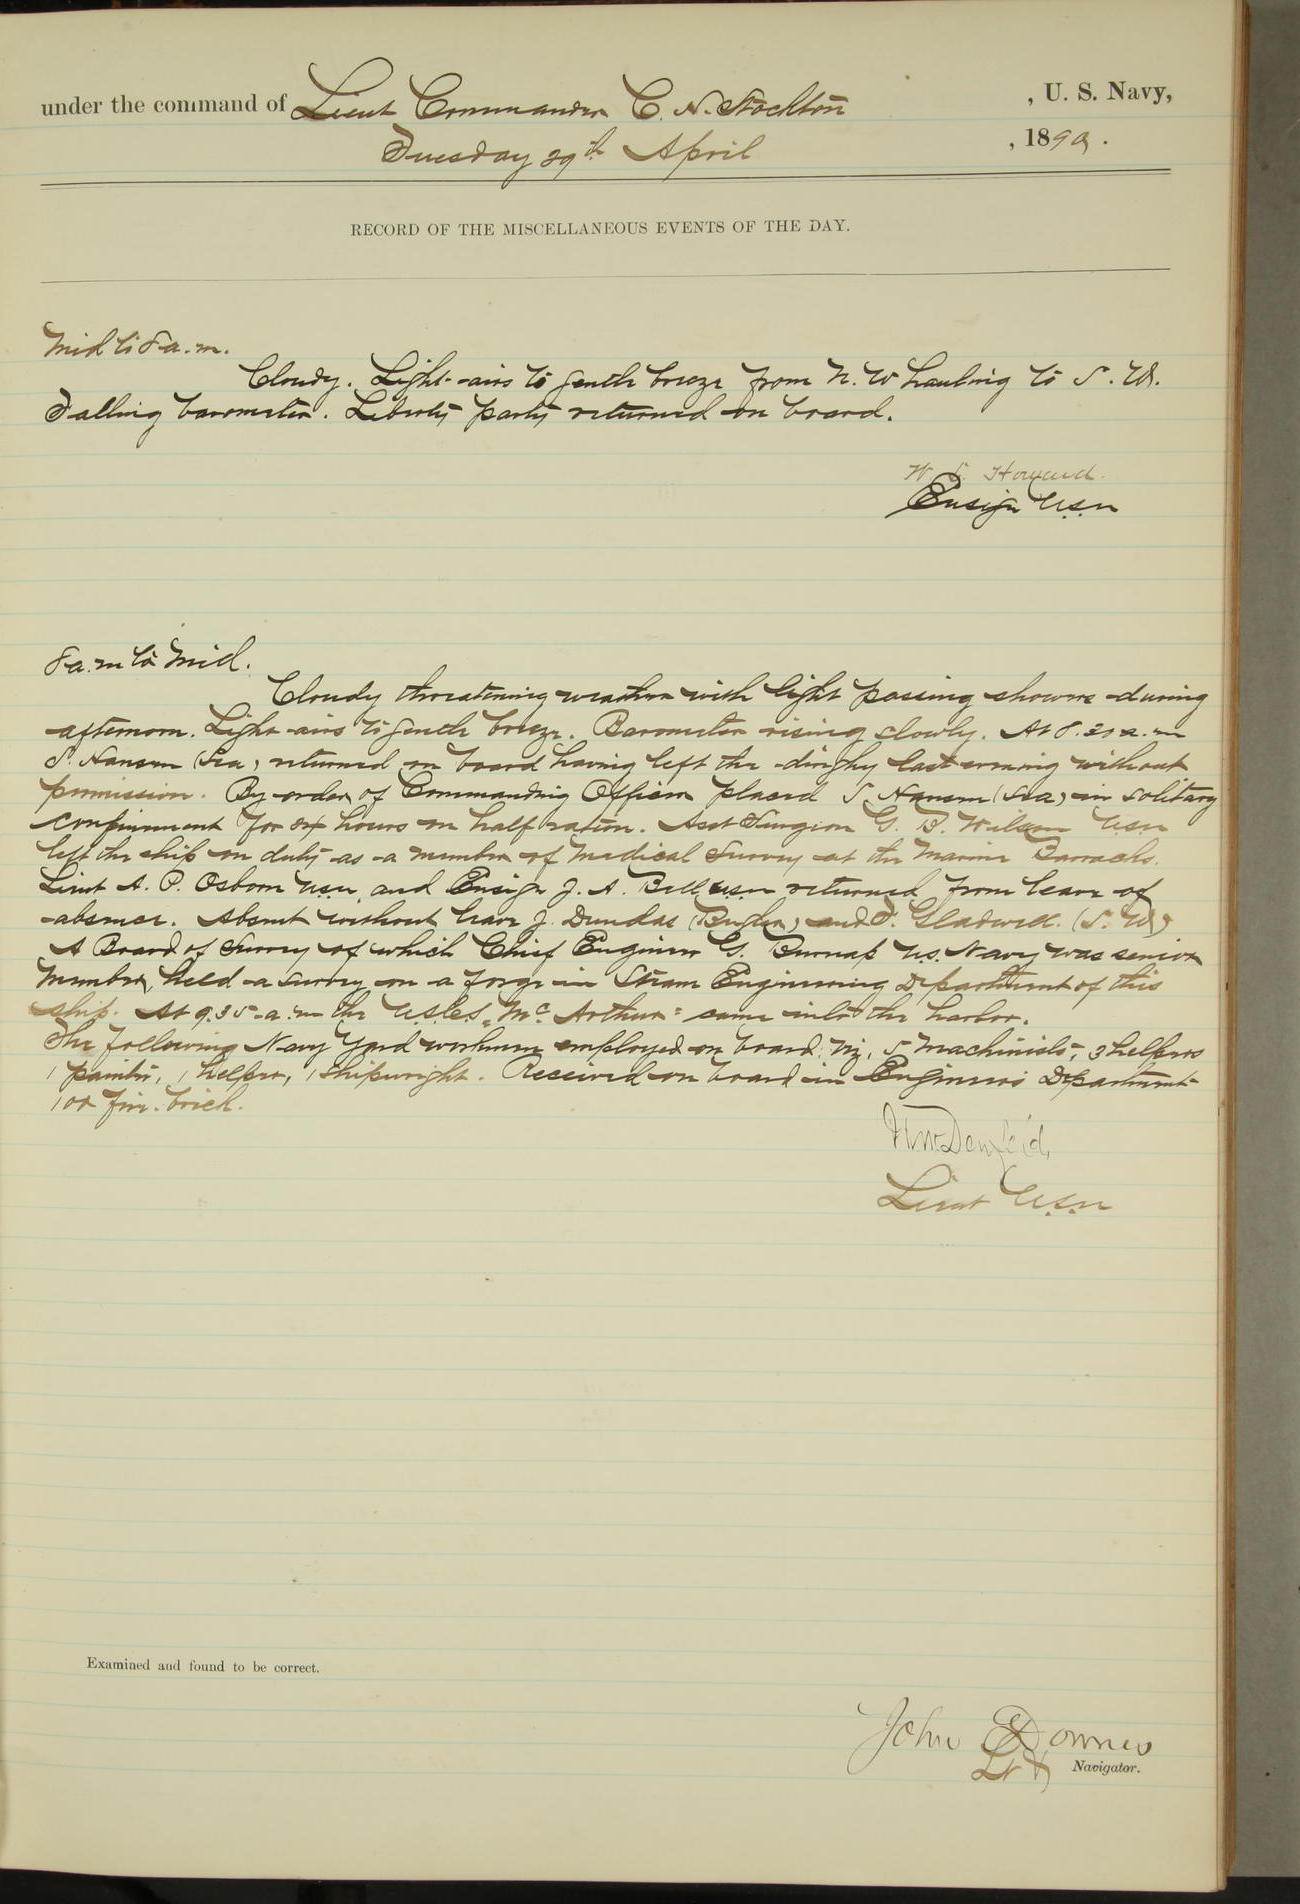 under the command of Lieut Commander C. H. Stockton , U. S. Navy,
Tuesday 29th April , 1890.
RECORD OF THE MISCELLANEOUS EVENTS OF THE DAY.
Mid to 8 a.m.
Cloudy. Light airs to gentle breeze from N. W hauling to S. W.
Falling barometer. Liberty party returned on board.
W. S. Howard
Ensign U.S.N
8 a.m to Mid.
Cloudy threatening weather with light passing showers during
afternoon. Light airs to gentle breeze. Barometer rising slowly. At 8.30 a.m
S. Hansen (Sea) returned on board having left the dinghy last evening without
permission. By order of Commanding Officer placed S. Hansen (Sea) in solitary
confinement for 24 hours on half ration. Asst Surgeon G. B. Wilson USN
left the ship on duty as a member of Medical Survey at the Marine Barracks.
Lieut A. P. Osborn USN, and Ensign J. A. Bell USN returned from leave of
absence. Absent without leave J. Dundas (Bugler) and F. Gladwell. (S. W)
A Board of Survey of which Chief Engineer G. Burnap U.S. Navy was senior
Member, held a survey on a forge in Steam Engineering Department of this
ship. At 9.35 a.m the U.S.C.S. "Mc Arthur" came into the harbor.
The following Navy Yard workmen employed on board: viz, 5 Machinists, 3 helpers
1 painter, 1 helper, 1 shipwright. Received on board in Engineers Department
100 fire brick.
Denfeld,
Lieut U.S.N
Examined and found to be correct.
John Downes
Lt Navigator.